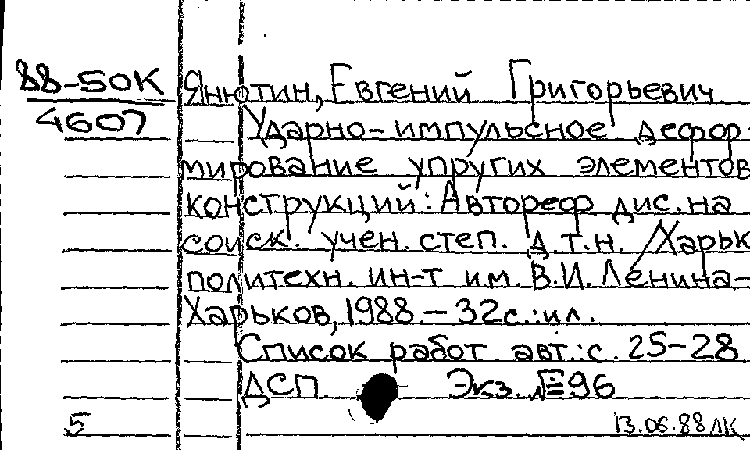 88-50К Янютин, Евгений Григорьевич
4607 Ударно-импульсное дефор
мирование упругих элементов
конструкций: Автореф дис. на
соиск. учен. степ. д.т.н. /Харьк
политехн. ин-т им. В.И. Ленина-
Харьков, 1988.-32с.:ил.
Список работ авт.: с. 25-28
ДСП Экз. №96
5 13.06.88 ЛК